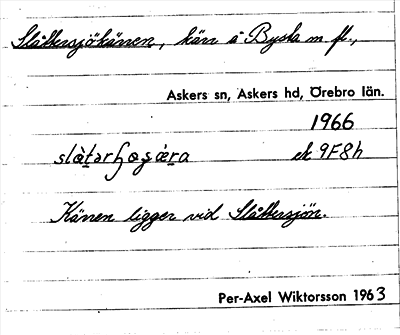 Slåttersjökärren, kärr å Bysta m fl.,
Askers sn, Askers hd, Örebro län.
1966
ek 9F8h
Kärren ligger vid Slåttersjön.
Per-Axel Wiktorsson 1963